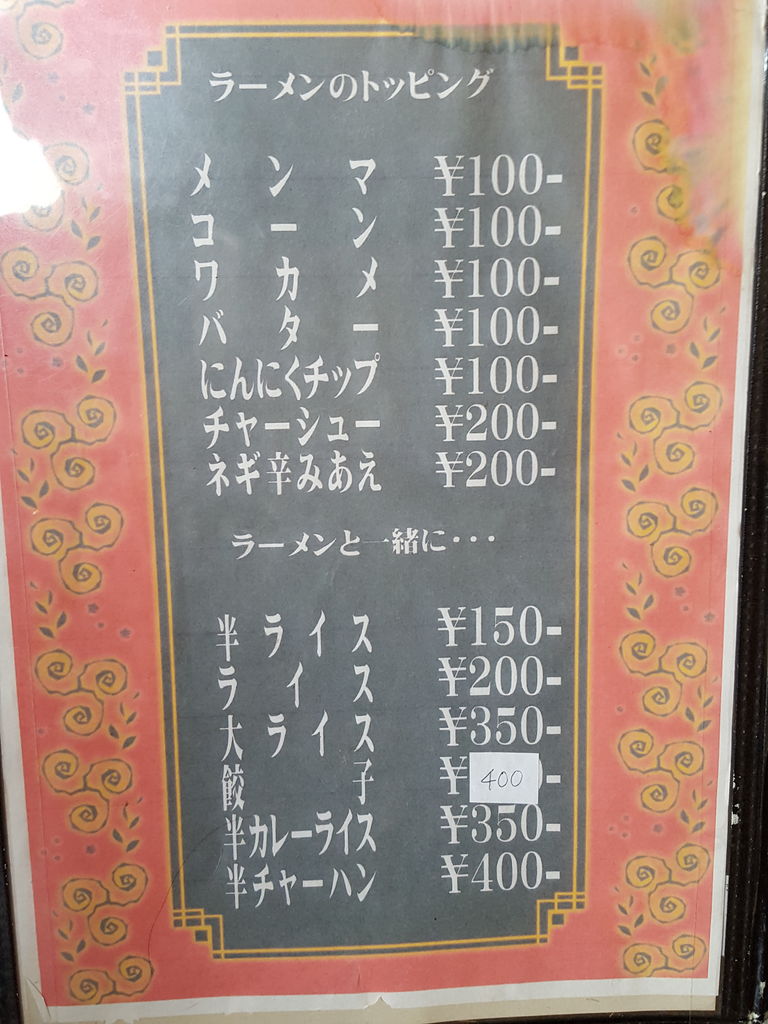 ラーメンのトッピング
メンマ ¥100-
コーン ¥100-
ワカメ ¥100-
バター ¥100-
にんにくチップ ¥100-
チャーシュー ¥200-
ネギ辛みあえ ¥200-
ラーメンと一緒に・・・
半ライス ¥150-
ライス ¥200-
大ライス ¥350-
餃子 ¥400-
半カレーライス ¥350-
半チャーハン ¥400-